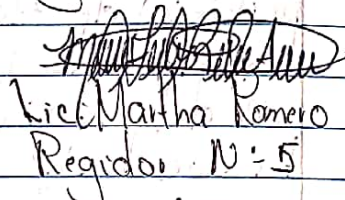 Lic. Martha Romero
Regidor N=5